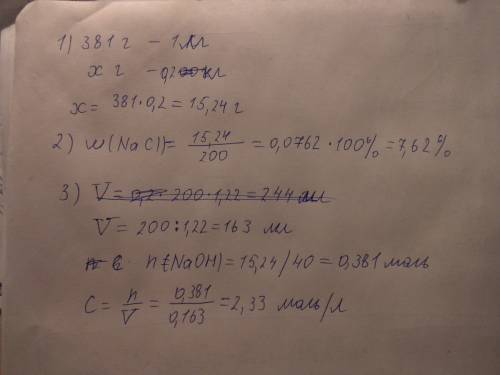 1) 381 г – 1 кг
x г – 0,200 кг
x = 381·0,2 = 15,24 г
2) w(NaCl) = 15,24/200 = 0,0762·100% = 7,62%
3) V = 0,2· 200·1,22 = 244 мл
V = 200:1,22 = 163 мл
n(NaOH) = 15,24/40 = 0,381 моль
C = n/V = 0,381/0,163 = 2,33 моль/л